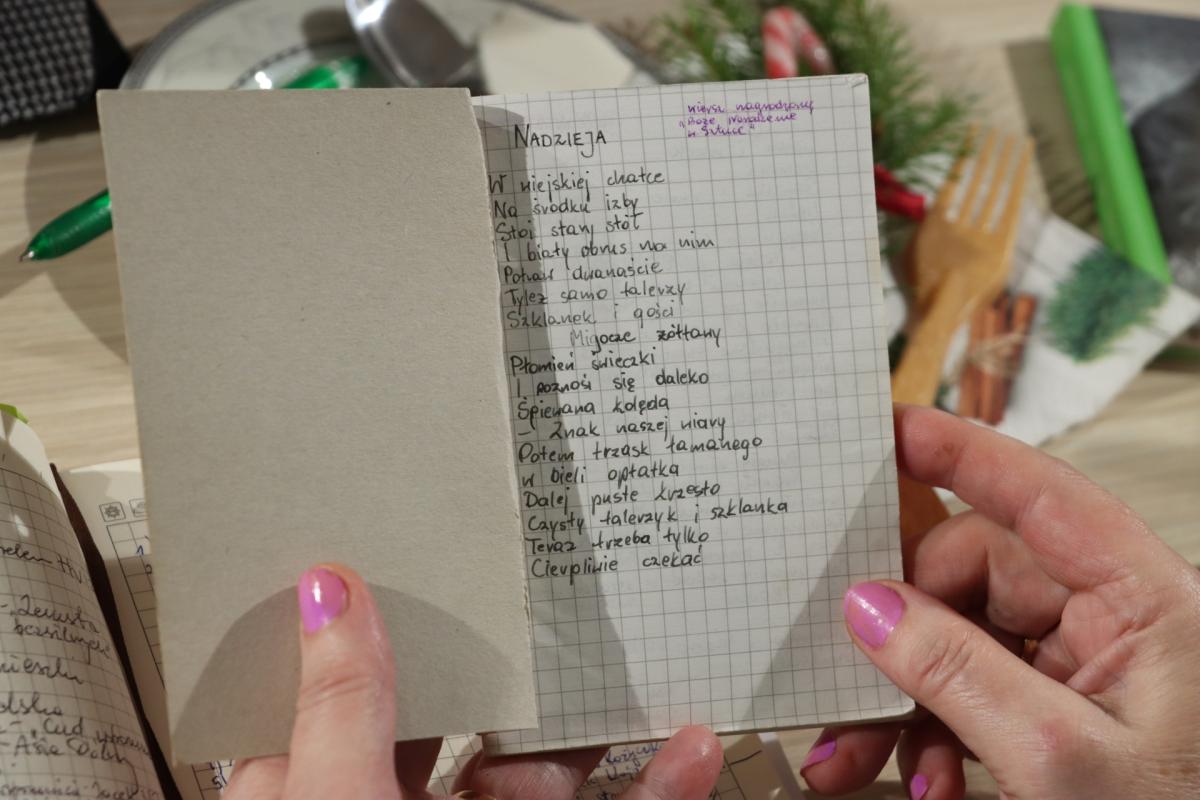 NADZIEJA
wiersz nagrodzony
"Boże Narodzenie
w Sztuce"
W wiejskiej chatce
Na środku izby
Stoi stary stół
I biały obrus na nim
Potraw dwanaście
Tyleż samo talerzy
Szklanek i gości
Migocze żółtawy
Płomień świeczki
I roznosi się daleko
Śpiewana kolęda
- Znak naszej wiary
Potem trzask łamanego
w bieli opłatka
Dalej puste krzesło
Czysty talerzyk i szklanka
Teraz trzeba tylko
Cierpliwie czekać